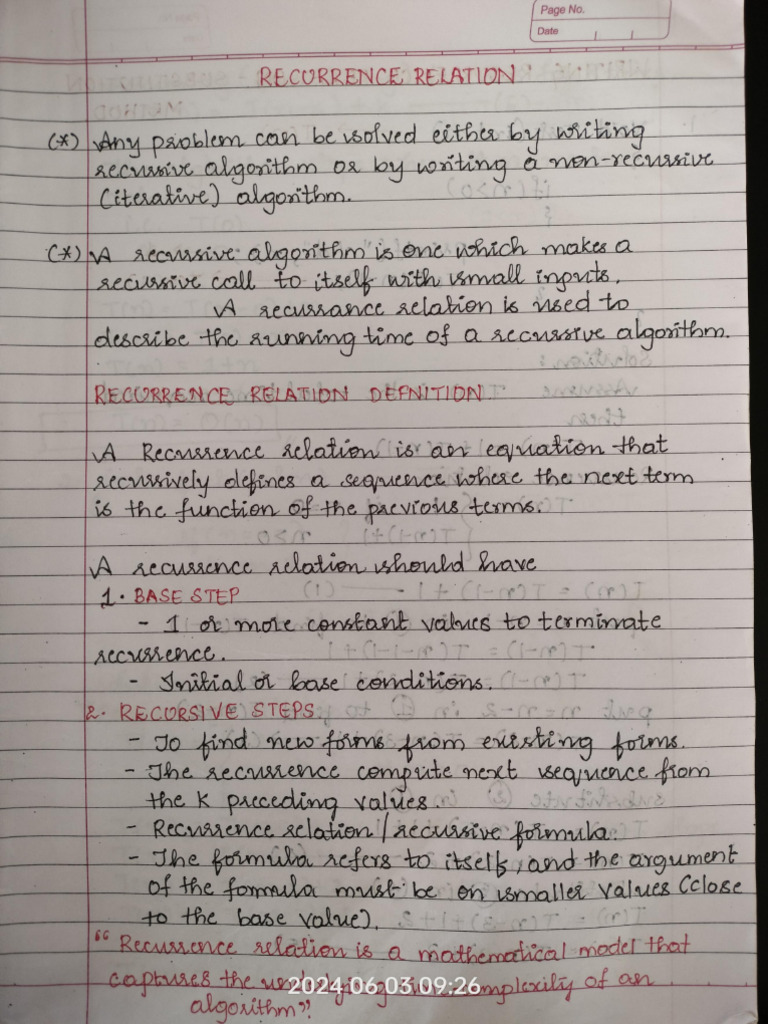 Page No.
Date
RECURRENCE RELATION
(*) Any problem can be solved either by writing
recursive algorithm or by writing a non-recursive
(iterative) algorithm.
(*) A recursive algorithm is one which makes a
recursive call to itself with small inputs.
A recurrance relation is used to
describe the running time of a recursive algorithm.
RECURRENCE RELATION DEFNITION
A Recurrence relation is an equation that
recursively defines a sequence where the next term
is the function of the previous terms.
A recurrence relation should have
1. BASE STEP
- 1 or more constant values to terminate
recurrence.
- Initial or base conditions.
2. RECORSIVE STEPS
- To find new forms from existing forms.
- The recurrence compute next sequence from
the K preceding values.
- Recurrence relation / recursive formula.
- The formula refers to itself, and the argument
of the formula must be on smaller values (close
to the base value).
"Recurrence relation is a mathematical model that
captures the underlying time complexity of an
algorithm"
2024.06.03 09:26